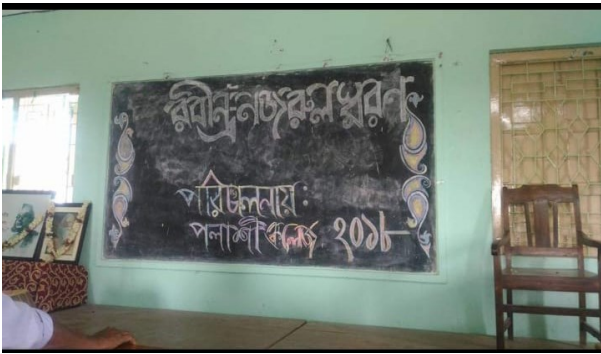 রবীন্দ্র নজরুল স্মরণ
পরিচালনায় :
পলাশী কলেজ ২০১৮